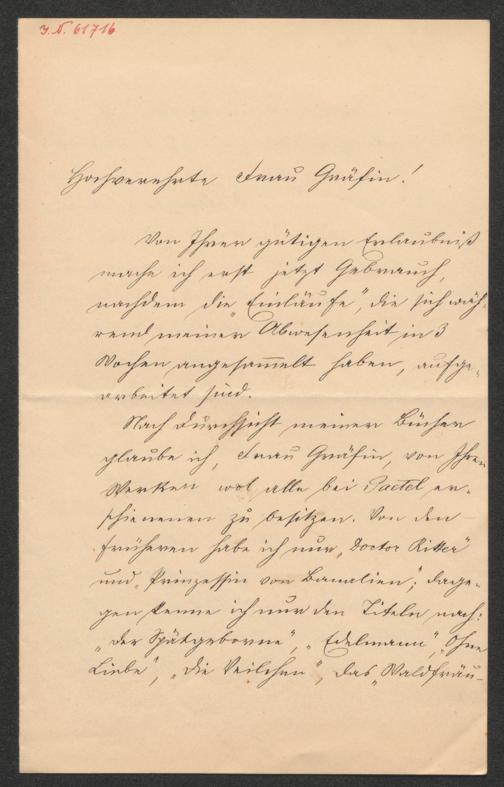 J.N. 61716
Hochverehrte Frau Gräfin!
Von Ihrer gütigen Erlaubniß
mache ich erst jetzt Gebrauch,
nachdem die „Einläufe“, die sich wäh-
rend meiner Abwesenheit in 3
Wochen angesammelt haben, aufge-
arbeitet sind.
Nach Durchsicht meiner Bücher
glaube ich, Frau Gräfin, von Ihren
Werken wol alle bei Paetel er-
schienenen zu besitzen. Von den
früheren habe ich nur „Doctor Ritter“
und „Prinzessin von Banalien“; dage-
gen kenne ich nur den Titeln nach:
„Der Spätgeborne“, „Edelmann“, „Ohne
Liebe“, „Die Veilchen“, Das „Waldfräu-